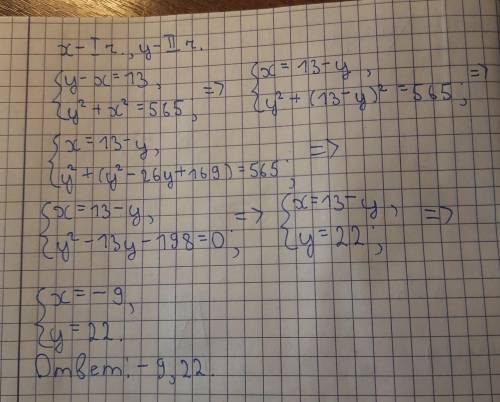 x – I ч., y – II ч.
{y – x = 13, y² + x² = 565, => {x = 13 – y, y² + (13 – y)² = 565; =>
{x = 13 – y, y² + (y² – 26y + 169) = 565; =>
{x = 13 – y, y² – 13y – 198 = 0; => {x = 13 – y, y = 22; =>
{x = – 9, y = 22.
Ответ: – 9, 22.